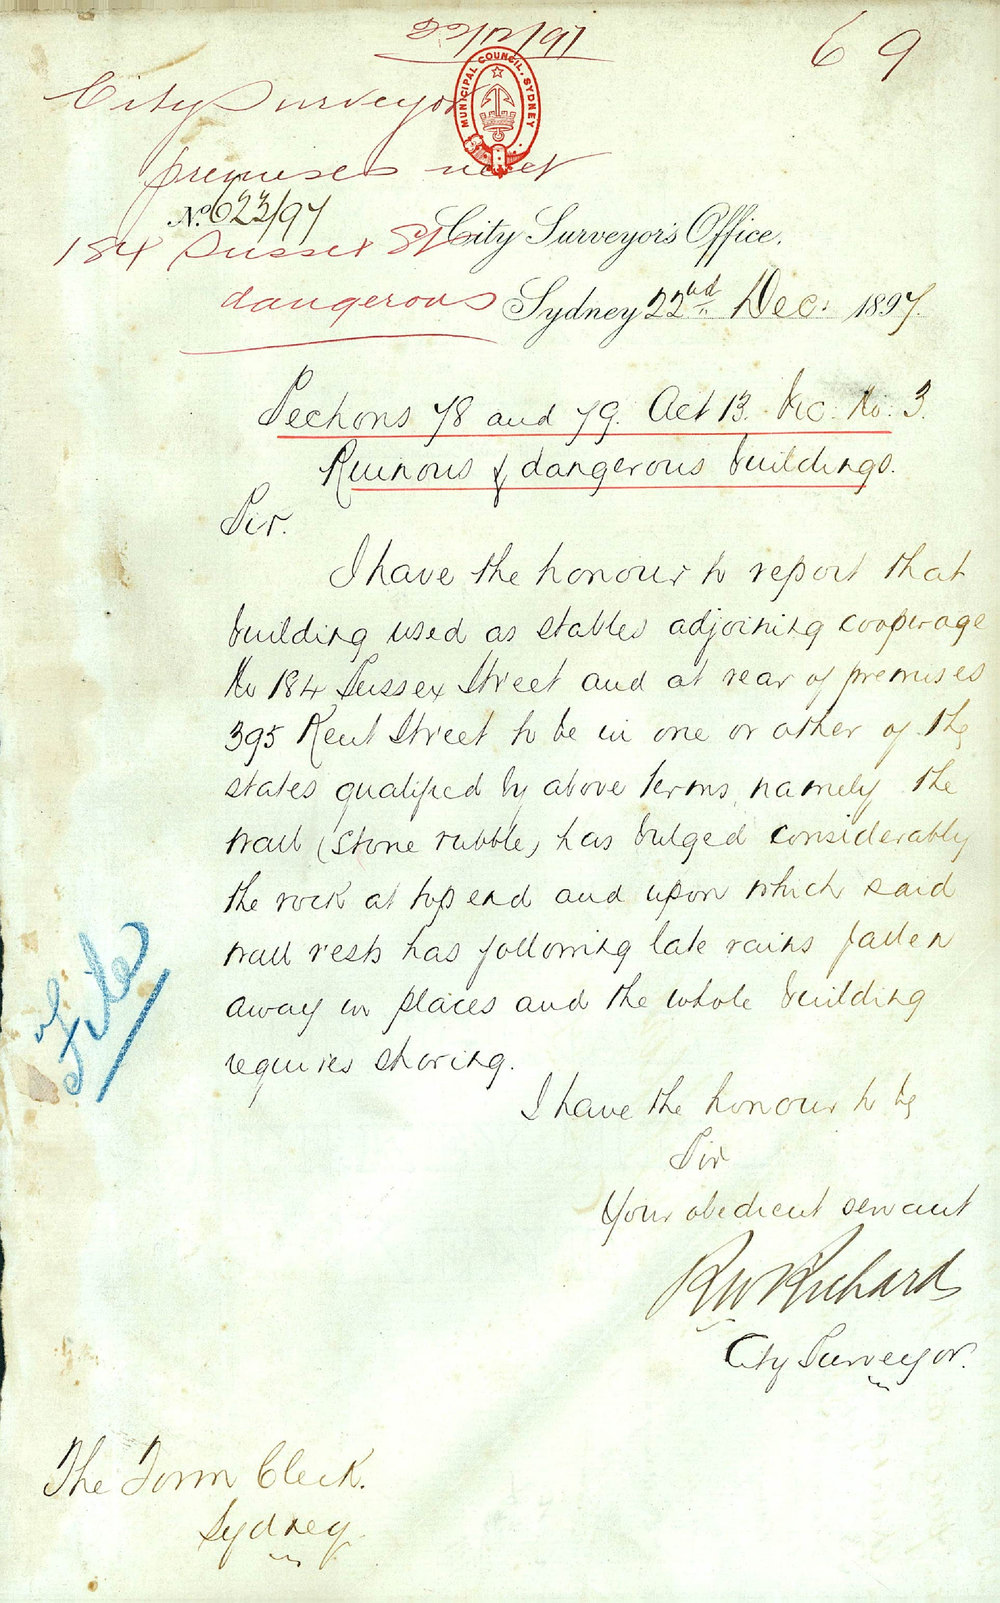 22/12/97
69
City Surveyor
MUNICIPAL COUNCIL. SYDNEY
premises next
No. 623/97
184 Sussex St
City Surveyor's Office.
dangerous
Sydney 22nd. Dec: 1897.
Sections 78 and 79. Act 13. Vic: No: 3.
Ruinous & dangerous buildings.
Sir.
I have the honour to report that
building used as stables adjoining cooperage
No 184 Sussex Street and at rear of premises
395 Kent Street to be in one or other of the
states qualified by above terms, namely the
wall (stone rubble) has bulged considerably
the rock at top end and upon which said
wall rests has following late rains fallen
away in places and the whole building
requires shoring.
File
I have the honour to be
Sir
Your obedient servant
RW Richards
City Surveyor.
The Town Clerk.
Sydney